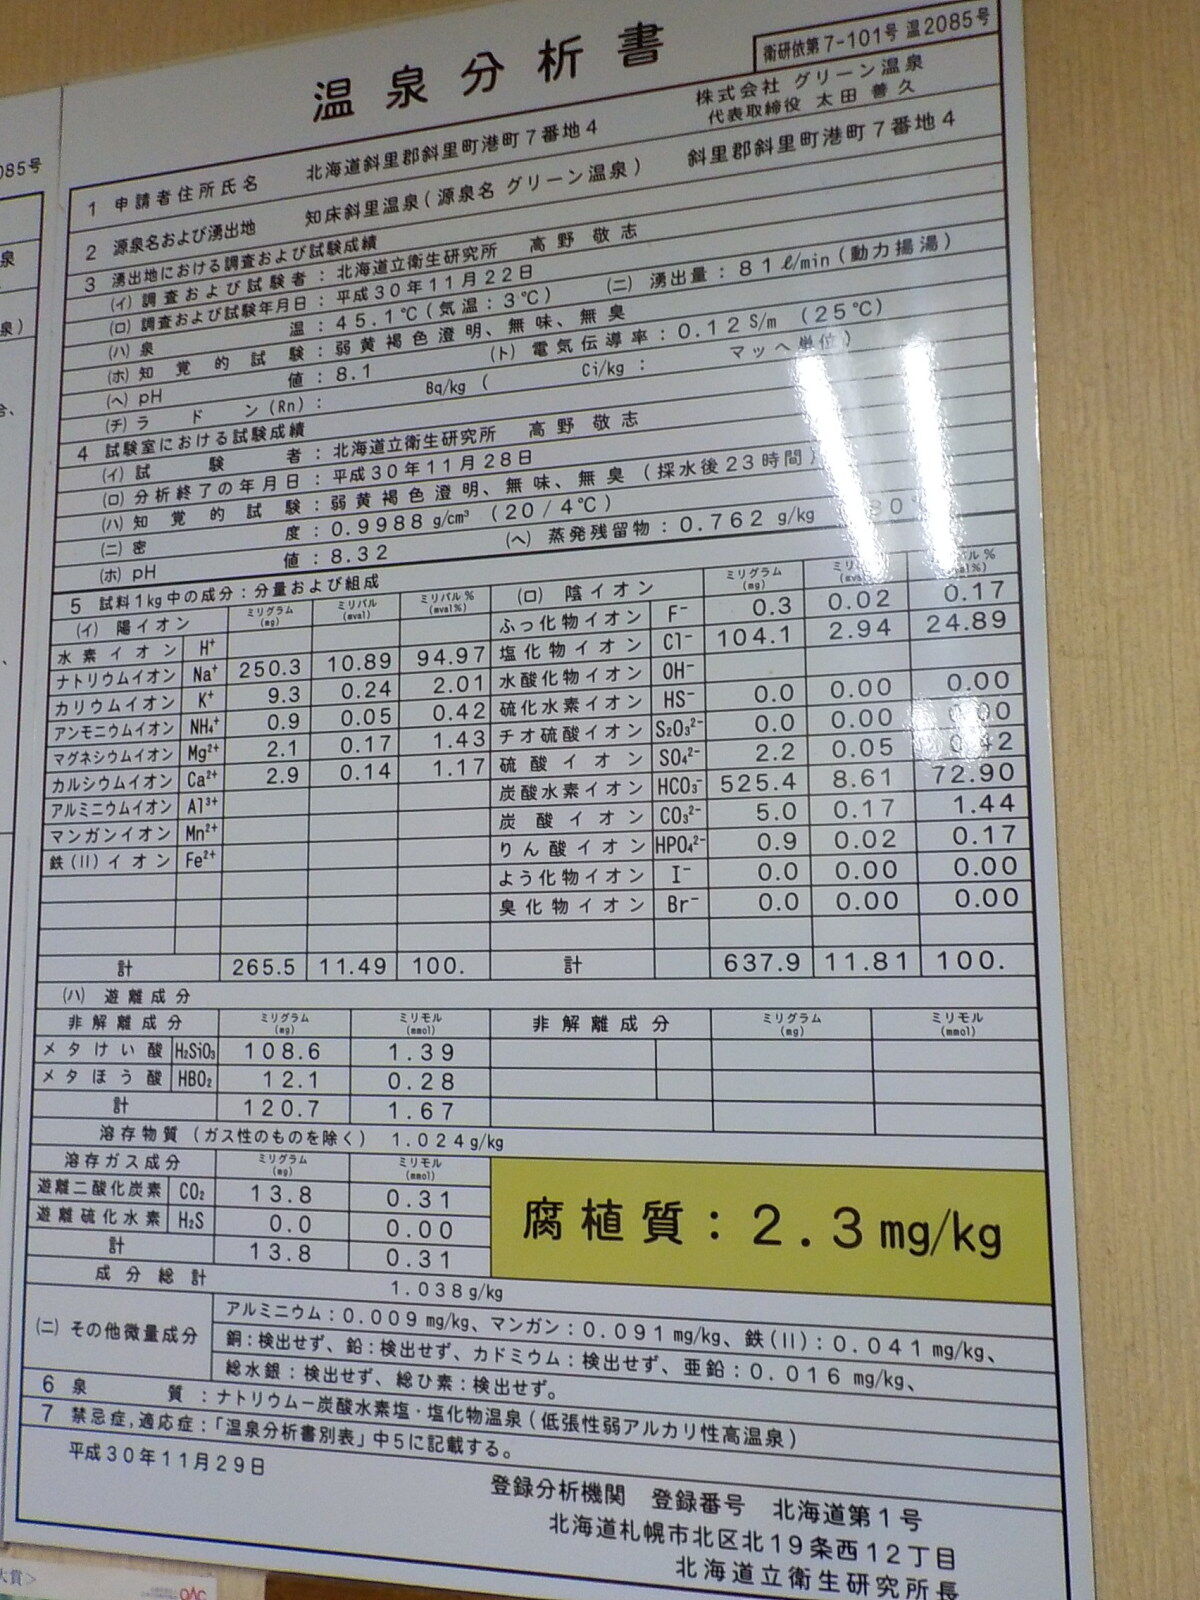 温泉分析書
衛研依第7-101号 温2085号
1 申請者住所氏名 北海道斜里郡斜里町港町7番地4 株式会社 グリーン温泉
代表取締役 太田 善久
2 源泉名および湧出地 知床斜里温泉(源泉名 グリーン温泉) 斜里郡斜里町港町7番地4
3 湧出地における調査および試験成績
(イ)調査および試験者:北海道立衛生研究所 高野 敬志
(ロ)調査および試験年月日:平成30年11月22日
(ハ)泉温:45.1℃(気温:3℃) (ニ)湧出量:81ℓ/min(動力揚湯)
(ホ)知覚的試験:弱黄褐色澄明、無味、無臭
(ヘ)pH値:8.1 (ト)電気伝導率:0.12S/m (25℃)
(チ)ラドン(Rn): Bq/kg ( Ci/kg: マッヘ単位)
4 試験室における試験成績
(イ)試験者:北海道立衛生研究所 高野 敬志
(ロ)分析終了の年月日:平成30年11月28日
(ハ)知覚的試験:弱黄褐色澄明、無味、無臭(採水後23時間)
(ニ)密度:0.9988g/cm³ (20/4℃)
(ホ)pH値:8.32 (ヘ)蒸発残留物:0.762 g/kg
5 試料1kg中の成分:分量および組成
(イ)陽イオン ミリグラム(mg) ミリバル(mval) ミリバル%(mval%) (ロ)陰イオン ミリグラム(mg)
水素イオン H⁺ ふっ化物イオン F⁻ 0.3 0.02 0.17
ナトリウムイオン Na⁺ 250.3 10.89 94.97 塩化物イオン Cl⁻ 104.1 2.94 24.89
カリウムイオン K⁺ 9.3 0.24 2.01 水酸化物イオン OH⁻
アンモニウムイオン NH₄⁺ 0.9 0.05 0.42 硫化水素イオン HS⁻ 0.0 0.00 0.00
マグネシウムイオン Mg²⁺ 2.1 0.17 1.43 チオ硫酸イオン S₂O₃²⁻ 0.0 0.00
カルシウムイオン Ca²⁺ 2.9 0.14 1.17 硫酸イオン SO₄²⁻ 2.2 0.05
アルミニウムイオン Al³⁺ 炭酸水素イオン HCO₃⁻ 525.4 8.61 72.90
マンガンイオン Mn²⁺ 炭酸イオン CO₃²⁻ 5.0 0.17 1.44
鉄(II)イオン Fe²⁺ りん酸イオン HPO₄²⁻ 0.9 0.02 0.17
よう化物イオン I⁻ 0.0 0.00 0.00
臭化物イオン Br⁻ 0.0 0.00 0.00
計 265.5 11.49 100. 計 637.9 11.81 100.
(ハ)遊離成分
非解離成分 ミリグラム(mg) ミリモル(mmol) 非解離成分 ミリグラム(mg) ミリモル(mmol)
メタけい酸 H₂SiO₃ 108.6 1.39
メタほう酸 HBO₂ 12.1 0.28
計 120.7 1.67
溶存物質(ガス性のものを除く) 1.024g/kg
溶存ガス成分 ミリグラム(mg) ミリモル(mmol)
遊離二酸化炭素 CO₂ 13.8 0.31
遊離硫化水素 H₂S 0.0 0.00
計 13.8 0.31
腐植質:2.3mg/kg
成分総計 1.038g/kg
(ニ)その他微量成分
アルミニウム:0.009mg/kg、マンガン:0.091mg/kg、鉄(II):0.041mg/kg、
銅:検出せず、鉛:検出せず、カドミウム:検出せず、亜鉛:0.016mg/kg、
総水銀:検出せず、総ひ素:検出せず。
6 泉質:ナトリウム-炭酸水素塩・塩化物温泉(低張性弱アルカリ性高温泉)
7 禁忌症,適応症:「温泉分析書別表」中5に記載する。
平成30年11月29日
登録分析機関 登録番号 北海道第1号
北海道札幌市北区北19条西12丁目
北海道立衛生研究所長